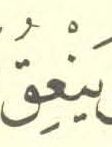 يَنْعِقُ